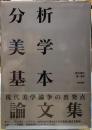 分析
美学
基本
現代美学論争の出発点
論文集